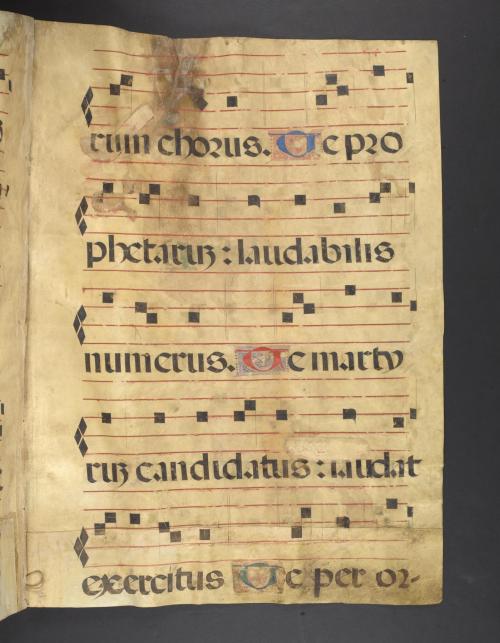 rum chorus. Te pro
phetaruʒ : laudabilis
numerus. Te marty
ruʒ candidatus : laudat
exercitus Te per or-